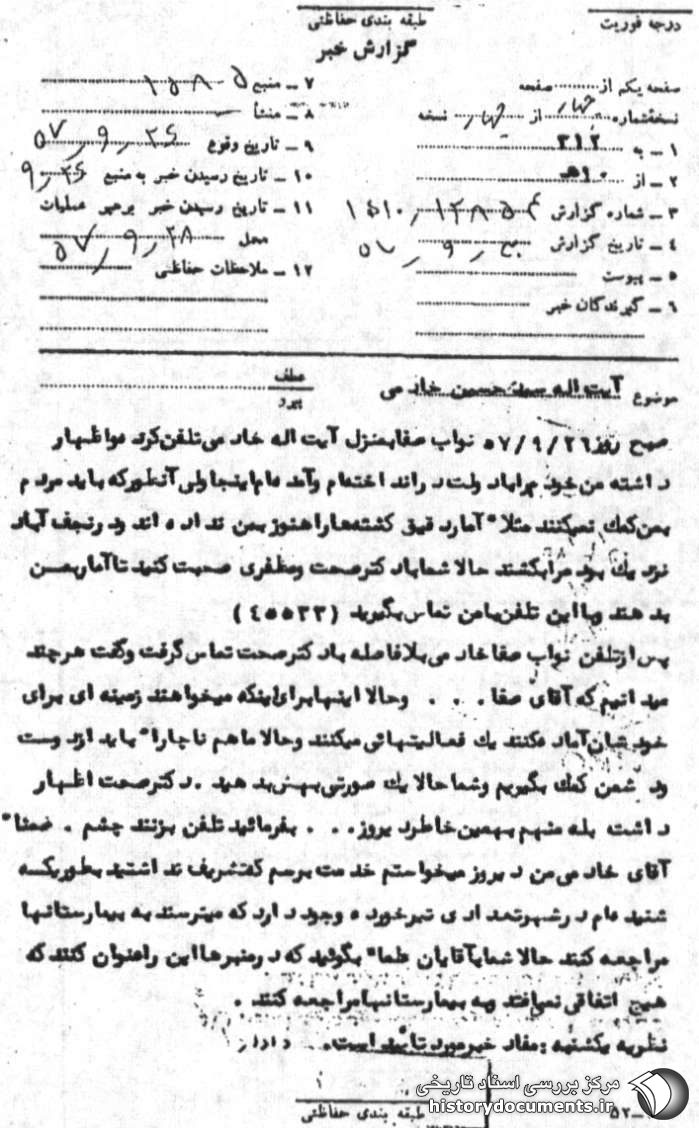 درجه فوریت
طبقه بندی حفاظتی
گزارش خبر
صفحه یکم از صفحه
نسخه شماره چهار از چهار نسخه
۱ ـ به ۳۱۲
۲ ـ از ۱۰ هـ
۳ ـ شماره گزارش
۴ ـ تاریخ گزارش
۵ ـ پیوست
۶ ـ گیرندگان خبر
۷ ـ منبع
۸ ـ منشأ
۹ ـ تاریخ وقوع ۵۷/۹/۲۶
۱۰ ـ تاریخ رسیدن خبر به منبع ۹/۲۶
۱۱ ـ تاریخ رسیدن خبر برهبر عملیات
محل ۵۷/۹/۲۸
۱۲ ـ ملاحظات حفاظتی
موضوع آیت اله سید حسین خادمی
عطف
پیرو
صبح روز ۵۷/۹/۲۶ نواب صفا بمنزل آیت اله خادمی تلفن کرد و اظهار
داشته من خود م را باد ولت در اند اخته ام وآمد ه ام اینجا ولی آنطورکه باید مردم
بمن کمك نمیکنند مثلا" آمار دقیق کشته ها را هنوز بمن نداده اند ود رنجف آباد
نزد یك بود مرا بکشند حالا شما باد کترصحت ومظفری صحبت کنید تا آمار بمن
بد هند وبا این تلفن بامن تماس بگیرید (۴۵۵۳۳)
پس ازتلفن نواب صفا خاد می بلافاصله باد کترصحت تماس گرفت وگفت هرچند
مید انیم که آقای صفا . . . وحالا اینها برای اینکه میخواهند زمینه ای برای
خود شان آماد ه کنند یك فعالیتهائی میکنند وحالا ما هم ناچارا" باید ازد وست
ود شمن کمك بگیریم وشما حالا یك صورتی بهش بد هید . د کترصحت اظهار
داشت بله منهم بهمین خاطر د یروز . . . بفرمائید تلفن بزنند چشم . ضمنا"
آقای خاد می من د یروز میخواستم خد مت برسم که تشریف ند اشتید بطوریکه
شنید ه ام د رشهر تعد اد ی تیرخورد ه وجود د ارد که میترسند به بیمارستانها
مراجعه کنند حالا شما به آقایان علما" بگوئید که د رمنبرها این راعنوان کنند که
هیچ اتفاقی نمیافتد وبه بیمارستانها مراجعه کنند .
نظریه یکشنبه : مفاد خبر مورد تائید است .
طبقه بندی حفاظتی
۵۲ـ
مرکز بررسی اسناد تاریخی
historydocuments.ir